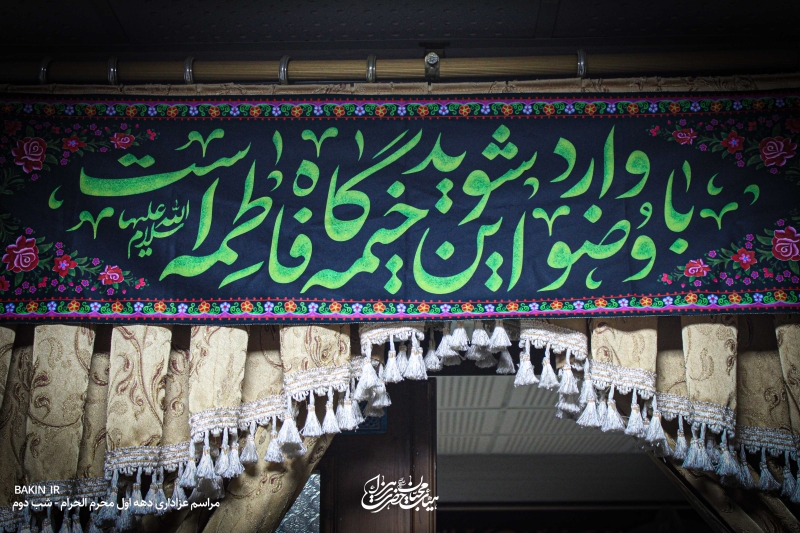 با وضو وارد شوید این خیمه گاه فاطمه است
سلام الله علیها
BAKIN_IR
مراسم عزاداری دهه اول محرم الحرام - شب دوم